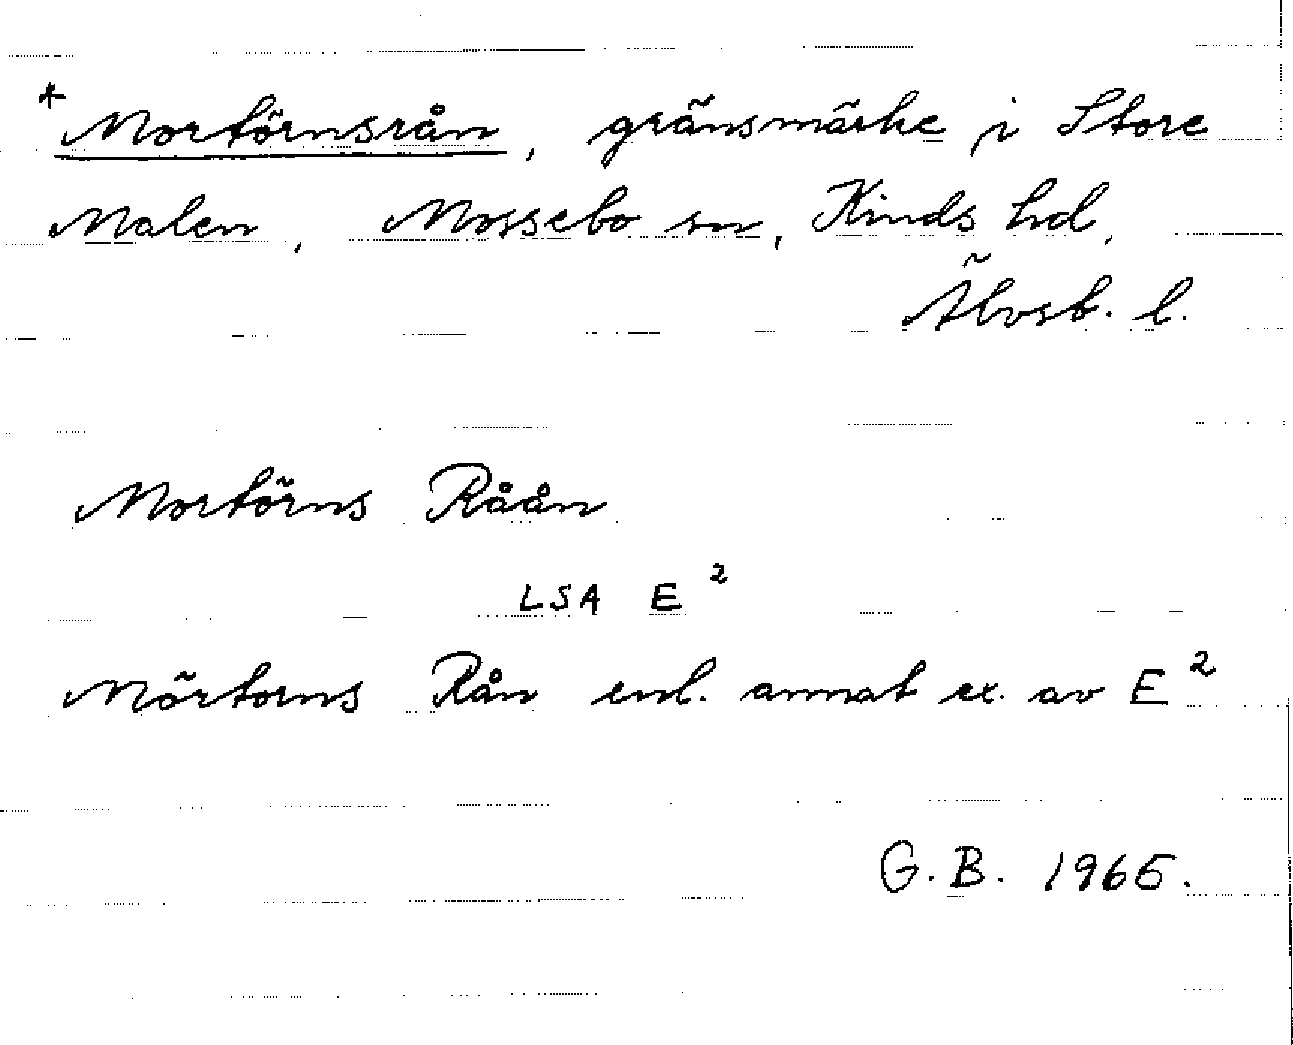 * Mortörnsrån, gränsmärke i Store
Malen, Mossebo sn, Kinds hd,
Älvsb. l.
Mortörns Råån
LSA E²
Mörtorns Rån enl. annat ex. av E²
G.B. 1965.